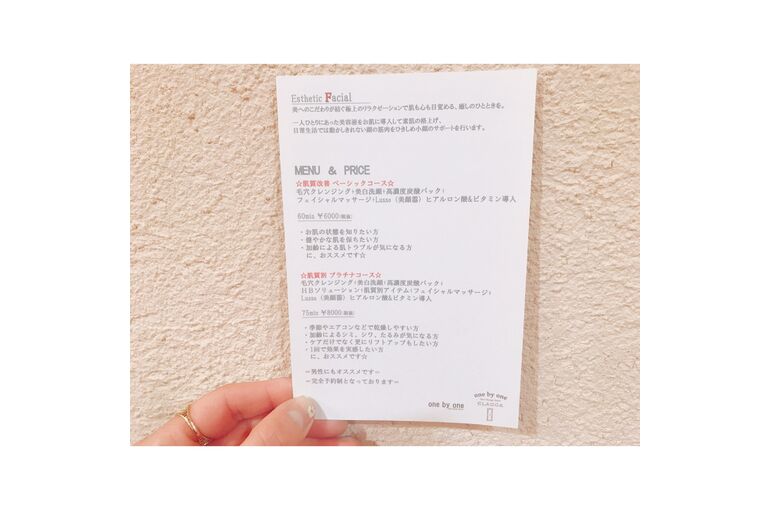 Esthetic Facial
美へのこだわりが紡ぐ極上のリラクゼーションで肌も心も目覚める、癒しのひとときを。
一人ひとりにあった美容液をお肌に導入して素肌の格上げ、
日常生活では動かしきれない顔の筋肉をひきしめ小顔のサポートを行います。
MENU & PRICE
☆肌質改善 ベーシックコース☆
毛穴クレンジング+美白洗顔+高濃度炭酸パック+
フェイシャルマッサージ+Lusso（美顔器）ヒアルロン酸&ビタミン導入
60min ￥6000(税抜)
・お肌の状態を知りたい方
・健やかな肌を保ちたい方
・加齢による肌トラブルが気になる方
に、おススメです☆
☆肌質別 プラチナコース☆
毛穴クレンジング+美白洗顔+高濃度炭酸パック+
ＨＢソリューション+肌質別アイテム+フェイシャルマッサージ+
Lusso（美顔器）ヒアルロン酸&ビタミン導入
75min ￥8000(税抜)
・季節やエアコンなどで乾燥しやすい方
・加齢によるシミ、シワ、たるみが気になる方
・ケアだけでなく更にリフトアップもしたい方
・1回で効果を実感したい方
に、おススメです☆
＝男性にもオススメです＝
＝完全予約制となっております＝
one by one
one by one